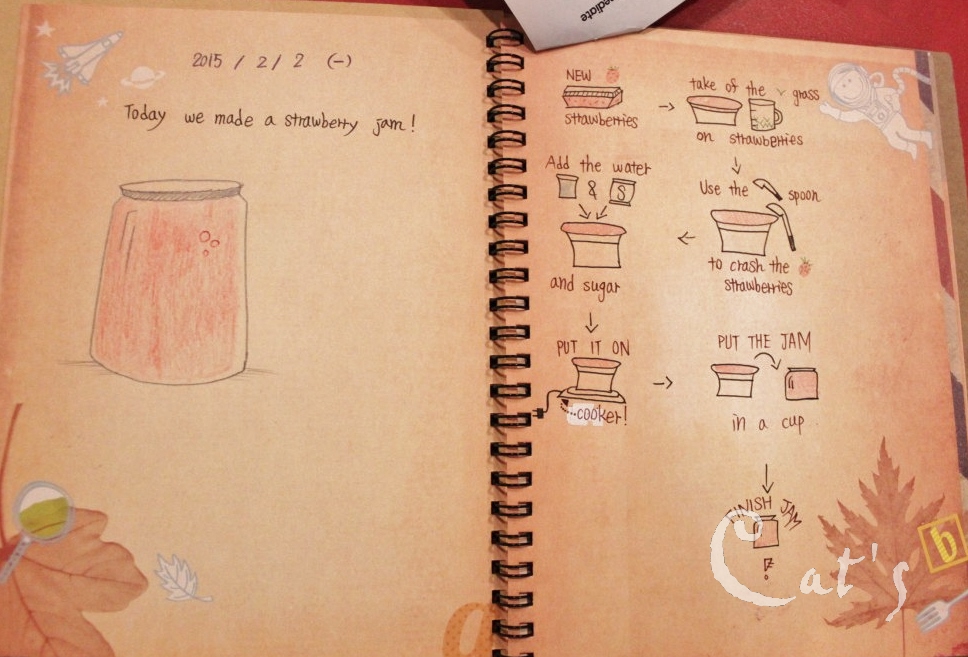 2015 / 2 / 2 (一)
Today we made a strawberry jam!
NEW
strawberries
take of the grass
on strawberries
Use the spoon
to crash the
strawberries
Add the water
& S
and sugar
PUT IT ON
cooker!
PUT THE JAM
in a cup
FINISH JAM
!
Cat's
b
a
mediate